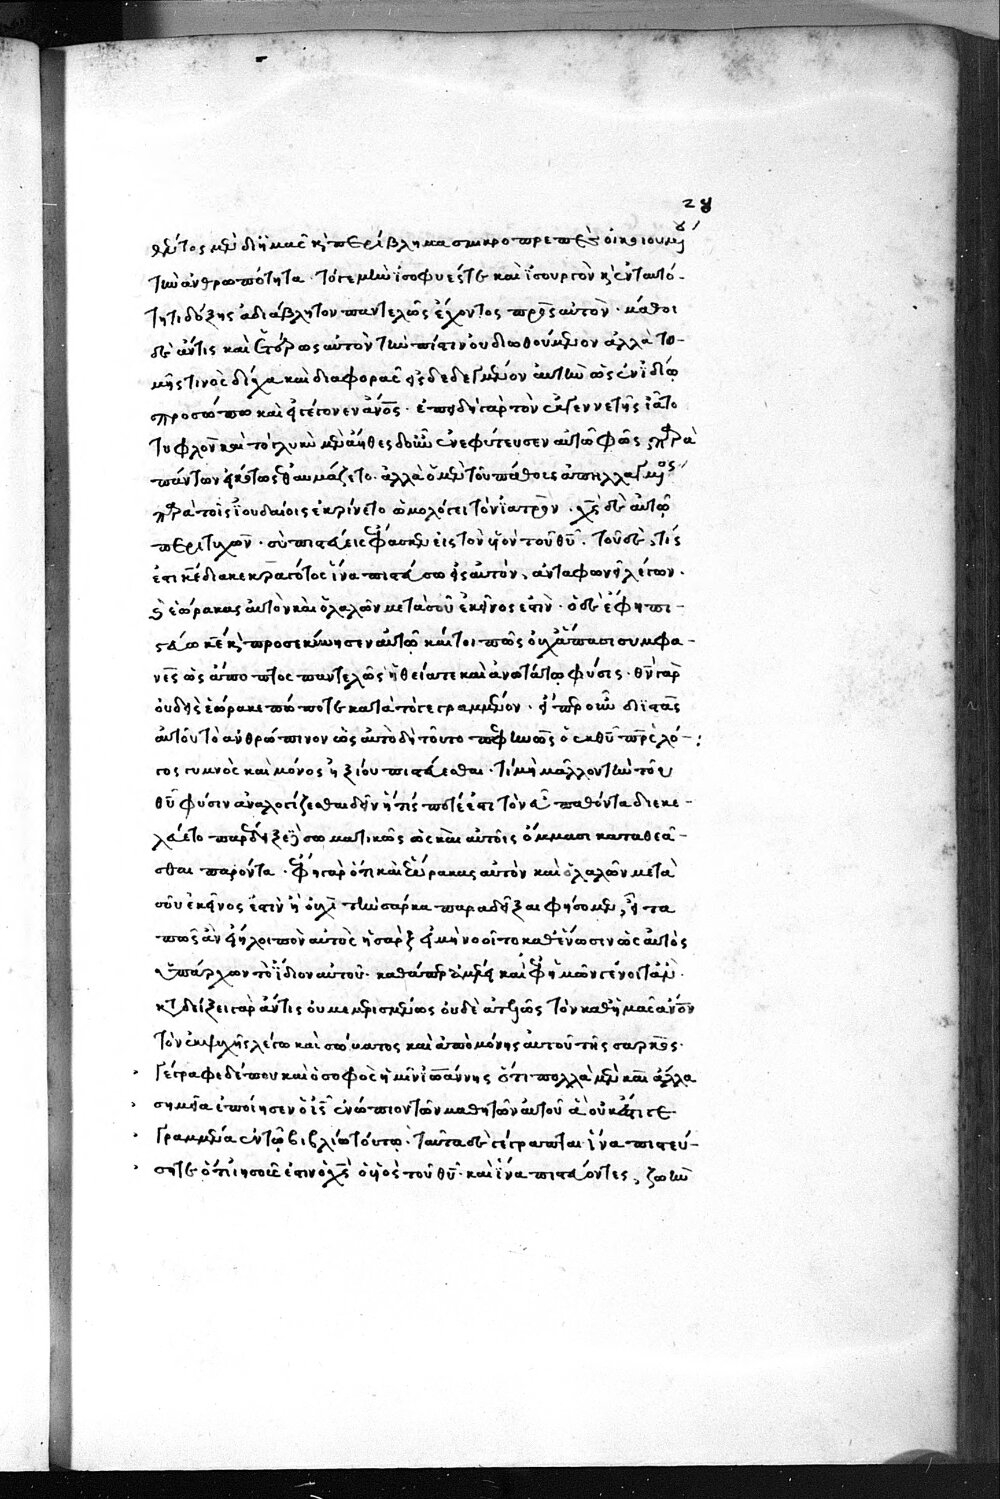 θέντος μὲν δι' ἡμᾶς κ(αὶ) περίβλημα σμικροπρεπὲς οἰκειουμένου
τὴν ἀνθρωπότητα· τό γε μὴν ἰσοφυές τε καὶ ἰσουργὸν κ(αὶ) ἐν ταυτό-
τητι δόξης ἀδιάβλητον παντελῶς ἔχοντος πρὸς αὐτὸν· μάθοι
δ' ἄν τις καὶ ἑτέρως αὐτὸν τὴν πίστιν οὐ διωθούμενον ἀλλὰ το-
μῆς τινὸς δίχα καὶ διαφορᾶς εἰσδεδεγμένον αὐτὴν ὡς ἐν ἰδίῳ
προσώπῳ καὶ εἰ γέγονεν ἄν(θρωπ)ος· ἐπειδὴ γὰρ τὸν ἐκ γεννετῆς ἰᾶτο
τυφλὸν καὶ τὸ γλυκὺ μὲν ἀηθες δ' οὖν ἐνεφύτευσεν αὐτῷ φῶς παρὰ
πάντων εἰκότως ἐθαυμάζετο· ἀλλ' ὁ μὲν τοῦ πάθους ἀπηλλαγμένος
παρὰ τοῖς ἰουδαίοις ἐκρίνετο ὡμολόγει τὸν ἰατρόν· χ(ριστὸ)ς δὲ αὐτῷ
περιτυχὼν· σὺ πιστεύεις ἔφασκεν εἰς τὸν υἱὸν τοῦ θ(εο)ῦ· τοῦ δὲ, τίς
ἐστι κ(ύρι)ε διακεκραγότος ἵνα πιστεύσω εἰς αὐτόν, ἀνταφωνεῖ λέγων·
κ(αὶ) ἑώρακας αὐτὸν καὶ ὁ λαλῶν μετὰ σοῦ ἐκεῖνός ἐστιν· ὁ δὲ ἔφη πι-
στεύω κ(ύρι)ε κ(αὶ) προσεκύνησεν αὐτῷ καίτοι πῶς οὐχ ἅπασι συμφα-
νὲς ὡς ἄποπτος παντελῶς ἡ θεία τε καὶ ἀνωτάτω φύσις· θ(εὸ)ν γὰρ
οὐδεὶς ἑώρακε πώποτε κατὰ τὸ γεγραμμένον·
αὐτοῦ τὸ ἀνθρώπινον ὡς αὐτὸ δὴ τοῦτο πεφηνὼς ὁ ἐκ θ(εο)ῦ π(ατ)ρ(ὸ)ς λό-
γος γυμνὸς καὶ μόνος ἠξίου πιστεύεσθαι· τί μὴ μᾶλλον τὴν τοῦ
θ(εο)ῦ φύσιν ἀναλογίζεσθαι δεῖν ἥτις ποτέ ἐστι τὸν εὖ παθόντα διεκε-
λεύετο παρέδειξε δὲ σωματικῶς ὡς κἀν αὐτοῖς ὄμμασι καταθεᾶ-
σθαι παρόντα· ἔφη γὰρ ὅτι καὶ ἑώρακας αὐτὸν καὶ ὁ λαλῶν μετὰ
σοῦ ἐκεῖνός ἐστιν ἢ οὐχὶ τὴν σάρκα παραδεῖξαι φήσομεν,
πῶς ἂν εἴη λοιπὸν αὐτὸς ἡ σάρξ εἰ μὴ νοοῖτο καθ' ἕνωσιν ὡς αὐτὸς
ὑπάρχων τὸ ἴδιον αὐτοῦ· καθάπερ ἀμέλει καὶ ἐφ' ἡμῶν γένοιτ' ἂν·
κ(ατα)δείξει γὰρ ἄν τις οὐ μεμερισμένως οὐδὲ ἀτελῶς τὸν καθ' ἡμᾶς ἄν(θρωπ)ον
τὸν ἐκ ψυχῆς λέγω καὶ σώματος καὶ ἀπὸ μόνης αὐτοῦ τῆς σαρκός·
Γέγραφε δέ που καὶ ὁ σοφὸς ἡμῖν ἰωάννης ὅτι πολλὰ μὲν καὶ ἄλλα
σημεῖα ἐποίησεν ὁ ἰ(ησοῦ)ς ἐνώπιον τῶν μαθητῶν αὐτοῦ ἃ οὐκ ἔστι γε-
γραμμένα ἐν τῷ βιβλίῳ τούτῳ· ταῦτα δὲ γέγραπται ἵνα πιστεύ-
σητε ὅτι ἰησοῦς ἐστιν ὁ χ(ριστὸ)ς ὁ υἱὸς τοῦ θ(εο)ῦ· καὶ ἵνα πιστεύοντες, ζωὴν